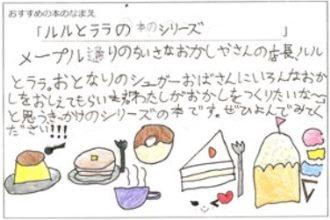 おすすめの本のなまえ
「ルルとララの本のシリーズ」
メープル通りのちいさなおかしやさんの店長、ルル
とララ。おとなりのシュガーおばさんにいろんなおか
しをおしえてもらいます。わたしがおかしをつくりたいな〜
と思うきっかけのシリーズの本です。ぜひよんでみてく
ださい!!!